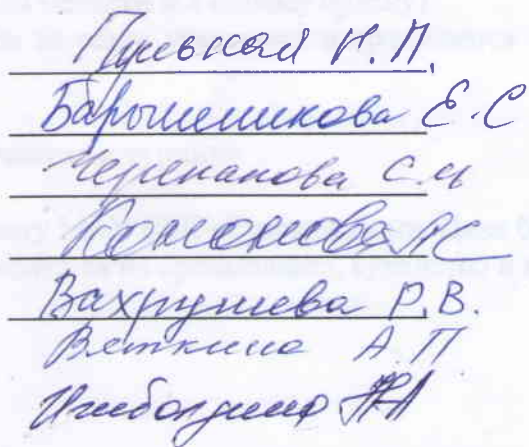 Пуевская И.П.
Барышникова Е.С
Черепанова С.М
Кононова Р.С
Вахрушева Р.В.
Вяткина А П
Ишболдина Н.А